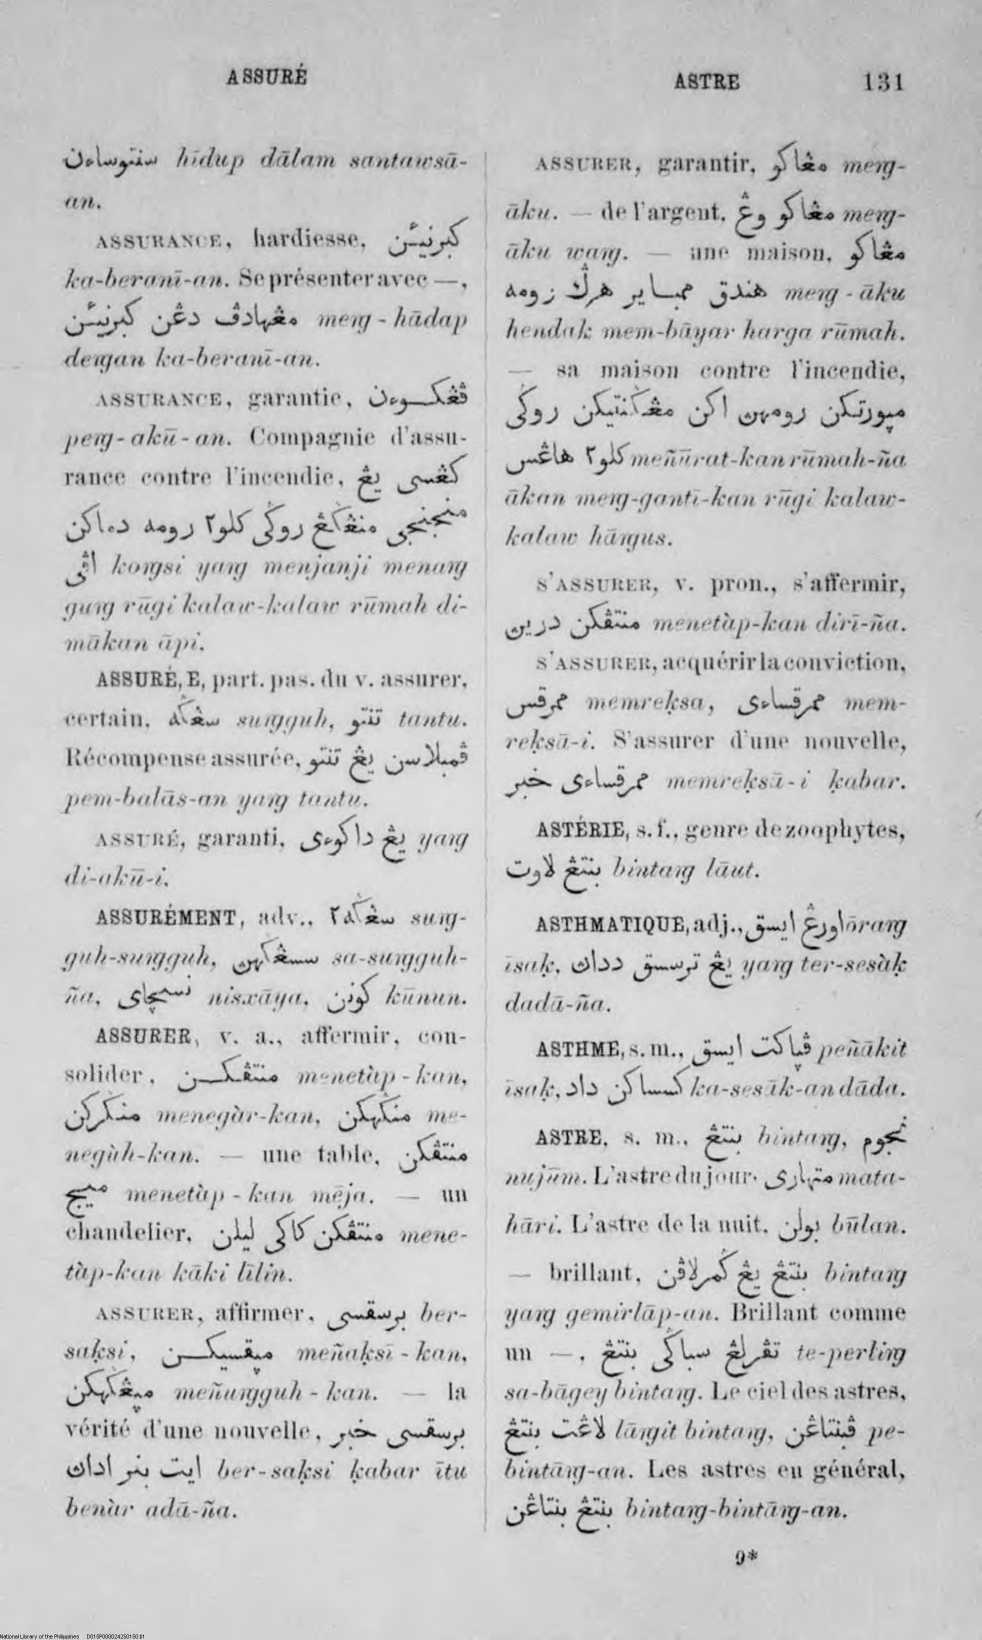 ASSURÉ
ASTRE 131
سنتوساءن hīdup dālam santawsā-
an.
ASSURANCE, hardiesse, كبرنيئن
ka-beranī-an. Se présenter avec —,
مڠهادڤ دڠن كبرنيئن meng-hādap
dengan ka-beranī-an.
ASSURANCE, garantie, ڤڠكوءن
peng-akū-an. Compagnie d'assu-
rance contre l'incendie, كڠسى يڠ
منجنجى منڠݢڠ روݢى كلو٢ رومه دماكن
اڤى kongsi yang menjanji menang
gung rūgi kalaw-kalaw rūmah di-
mākan āpi.
ASSURÉ, E, part. pas. du v. assurer,
certain, سڠݢه sungguh, تنتو tantu.
Récompense assurée, ڤمبلاسن يڠ تنتو
pem-balās-an yang tantu.
ASSURÉ, garanti, يڠ داكوءى yang
di-akū-i.
ASSURÉMENT, adv., سڠݢه٢ sung-
guh-sungguh, سسڠݢهن sa-sungguh-
ña, نسچاى nisxāya, كونن kūnun.
ASSURER, v. a., affermir, con-
solider, منتڤكن menetàp-kan,
منݢركن menegàr-kan, منݢهكن me-
negùh-kan. — une table, منتڤكن
ميج menetàp-kan mēja. — un
chandelier, منتڤكن كاكى ليلن mene-
tàp-kan kāki līlin.
ASSURER, affirmer, برسقسى ber-
saḳsi, مڽقسيكن meñaḳsī-kan,
مڽڠݢهكن meñungguh-kan. — la
vérité d'une nouvelle, برسقسى خبر
ايت بنر اداڽ ber-saḳsi ḳabar ītu
benàr adā-ña.
ASSURER, garantir, مڠاكو meng-
āku. — de l'argent, مڠاكو وڠ meng-
āku wang. — une maison, مڠاكو
هندق ممباير هرݢ رومه meng-āku
hendak mem-bāyar harga rūmah.
— sa maison contre l'incendie,
مڽورتكن رومهن اكن مڠݢنتيكن روݢى
كلو٢ هاڠس meñūrat-kan rūmah-ña
ākan meng-gantī-kan rūgi kalaw-
kalaw hāngus.
S'ASSURER, v. pron., s'affermir,
منتڤكن درين menetàp-kan dirī-ña.
S'ASSURER, acquérir la conviction,
ممرقس memreḳsa, ممرقساءى mem-
reḳsā-i. S'assurer d'une nouvelle,
ممرقساءى خبر memreḳsā-i ḳabar.
ASTÉRIE, s. f., genre de zoophytes,
بنتڠ لاوت bintang lāut.
ASTHMATIQUE, adj., اورڠ ايسق ōrang
īsaḳ, يڠ ترسسق دداڽ yang ter-sesàḳ
dadā-ña.
ASTHME, s. m., ڤڽاكت ايسق peñākit
īsaḳ, كسساكن داد ka-sesāk-an dāda.
ASTRE, s. m., بنتڠ bintang, نجوم
nujūm. L'astre du jour, متهارى mata-
hāri. L'astre de la nuit, بولن būlan.
— brillant, بنتڠ يڠ ݢمرلاڤن bintang
yang gemirlāp-an. Brillant comme
un —, تڤرلڠ سباݢى بنتڠ te-perling
sa-bāgey bintang. Le ciel des astres,
لاڠت بنتڠ lāngit bintang, ڤبنتاڠن pe-
bintāng-an. Les astres en général,
بنتڠ بنتاڠن bintang-bintāng-an.
9*
National Library of the Philippines